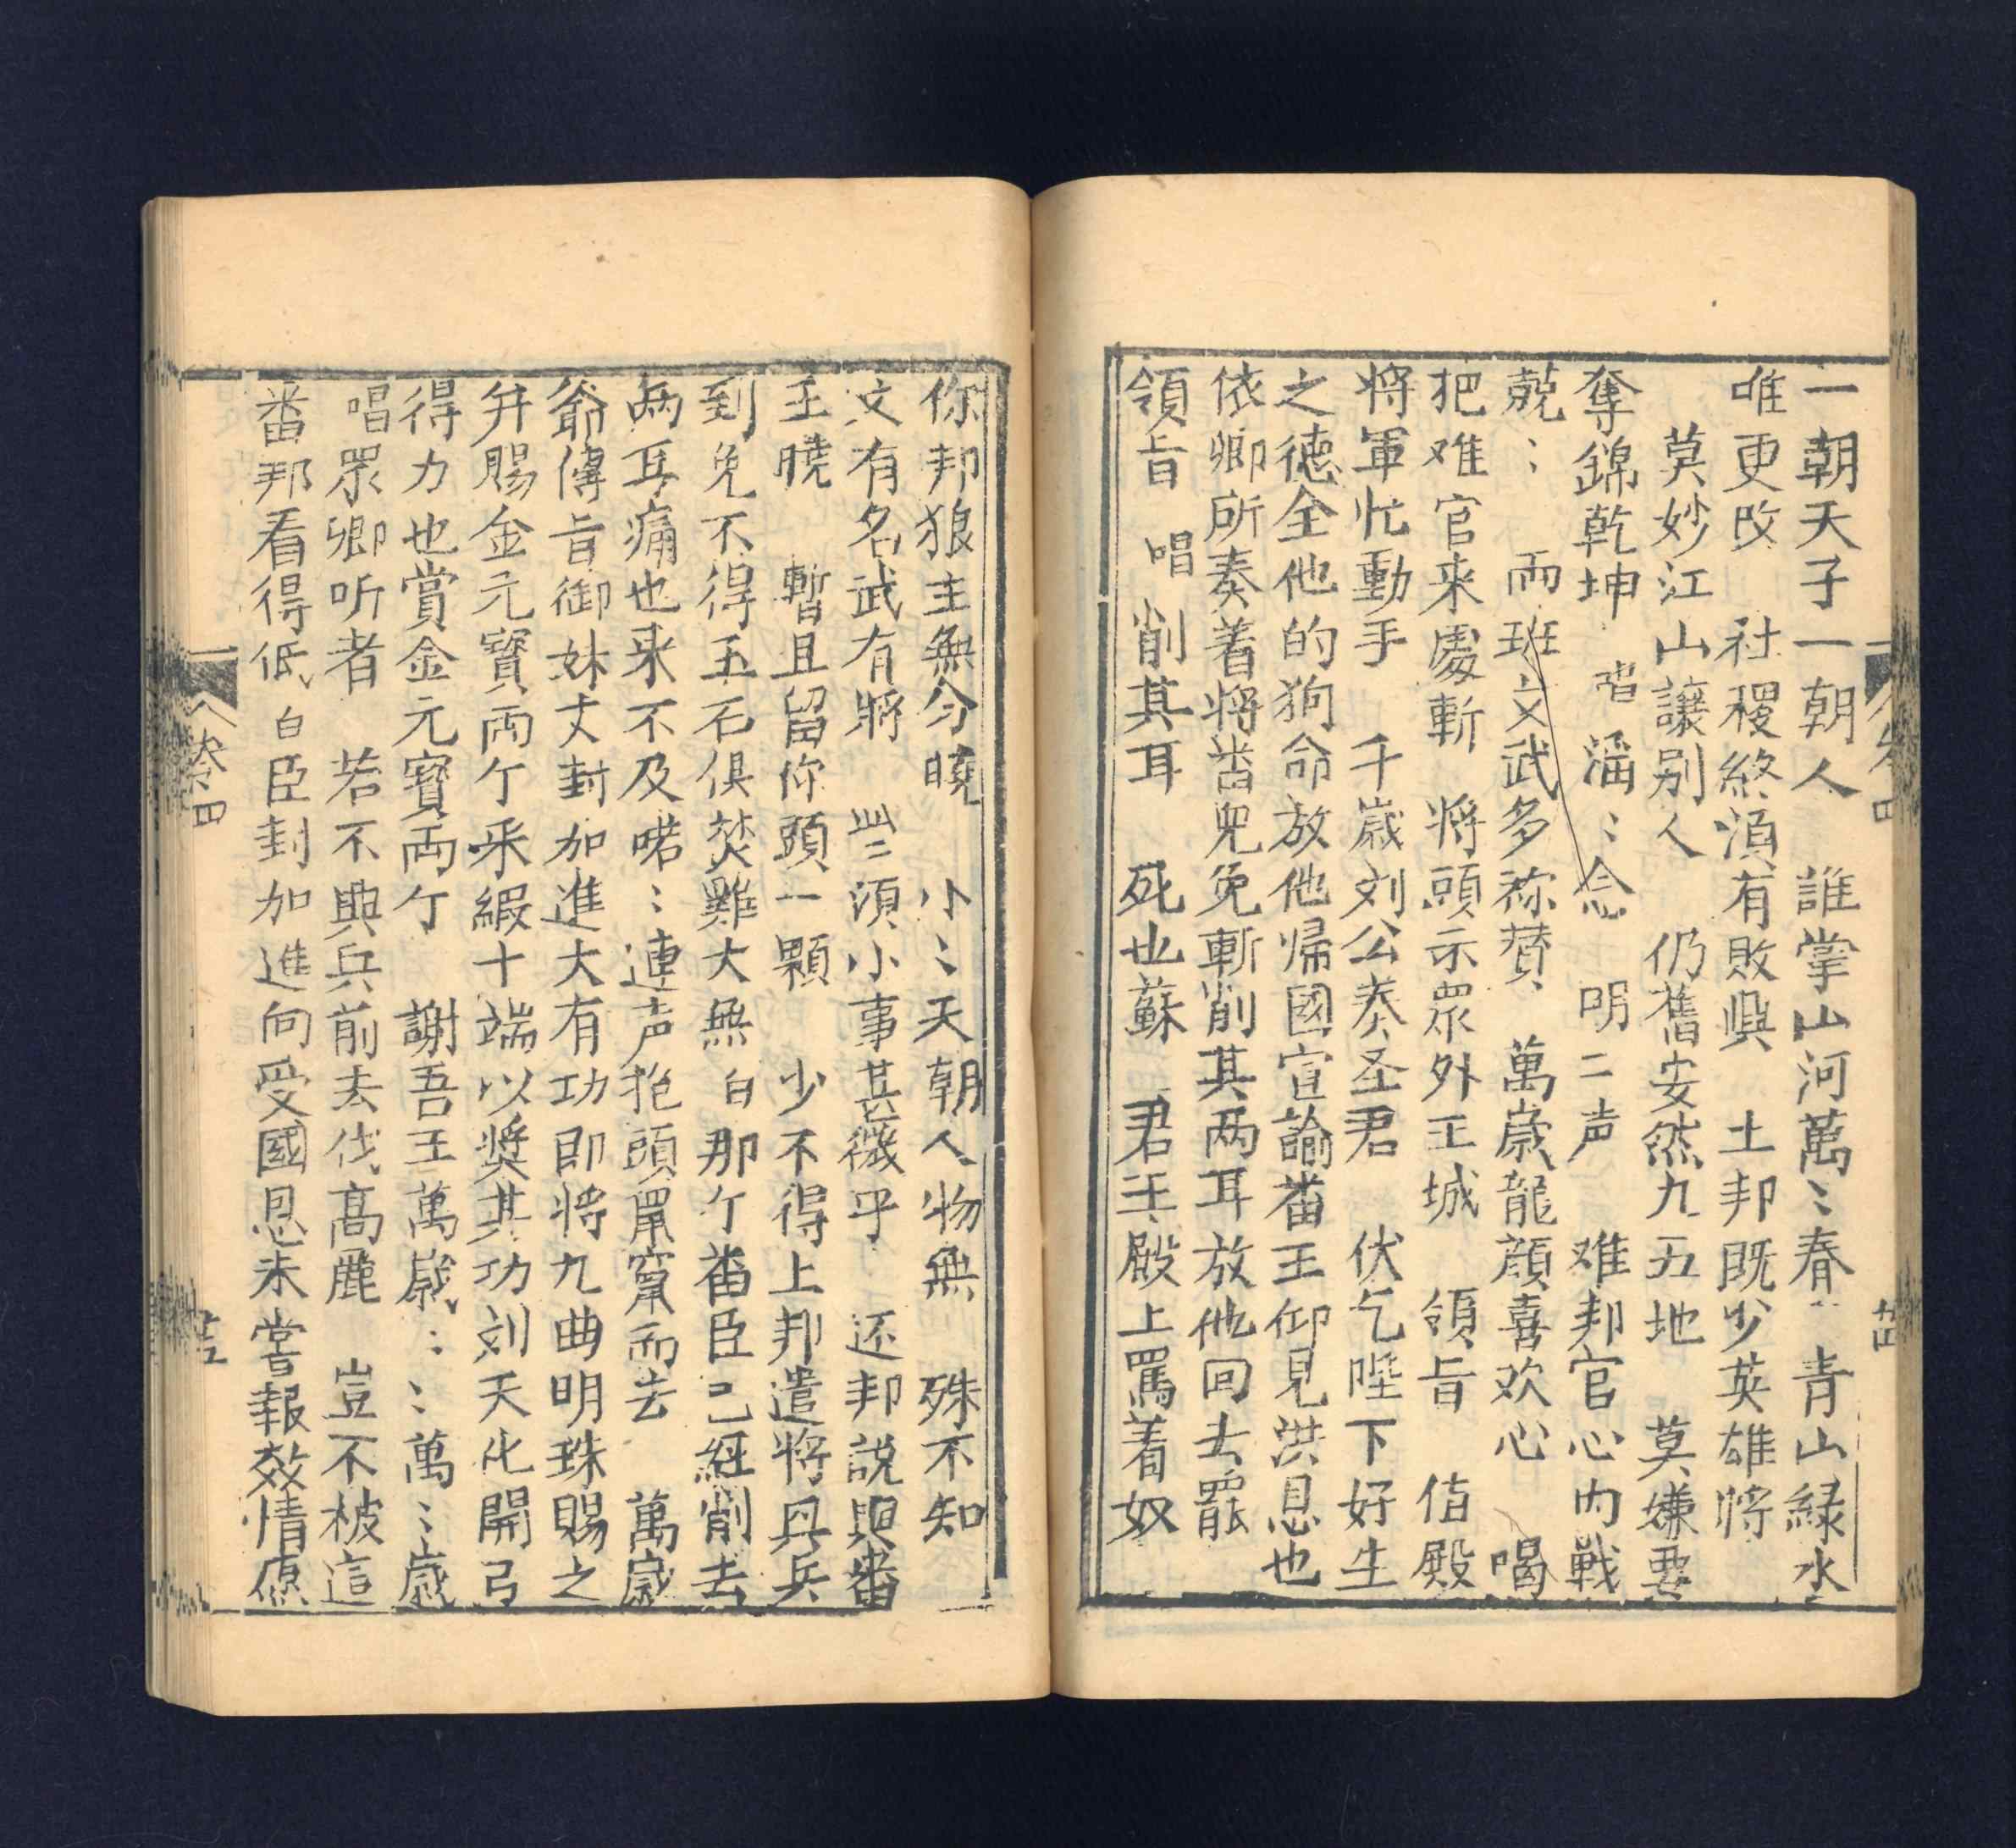 一朝天子一朝人　誰掌山河萬〻春　青山緑水
唯更改　社稷終湏有敗興　土邦既少英雄将
莫妙江山讓别人　仍舊安然九五地　莫嫌要
奪錦乾坤　滛〻念　明二声　难邦官心内戦
兢〻　両班文武多称賛　萬歳龍顔喜欢心　喝
把难官来處斬　将頭示眾外王城　領旨　值殿
将軍忙動手　千歳刘公奏圣君　伏乞陛下好生
之德全他的狗命放他帰國宣諭畨王仰見洪恩也
依卿所奏着将畨兜免斬削其两耳放他回去罷
領旨　唱　削其耳　死也蘇　君王殿上罵着奴
你邦狼主無分曉　小〻天朝人物無　殊不知
文有名武有將　些湏小事其微乎　还邦説與畨
王曉　暫且留你頭一顆　少不得上邦遣将興兵
到免不得玉石俱焚雞犬無　白　那亇畨臣已經削去
两耳痛也来不及喏〻連声抱頭鼠竄而去　萬歳
爺傳旨御妹丈封加進大有功即将九曲明珠賜之
并賜金元寳両亇采緞十端以奬其功刘天化開弓
得力也賞金元寳両亇　謝吾王萬歳〻〻萬〻歳
唱　眾卿听者　若不興兵前去伐髙麗　豈不被這
畨邦看得低　白　臣封加進向受國恩未嘗報效情愿
卷四
卷四